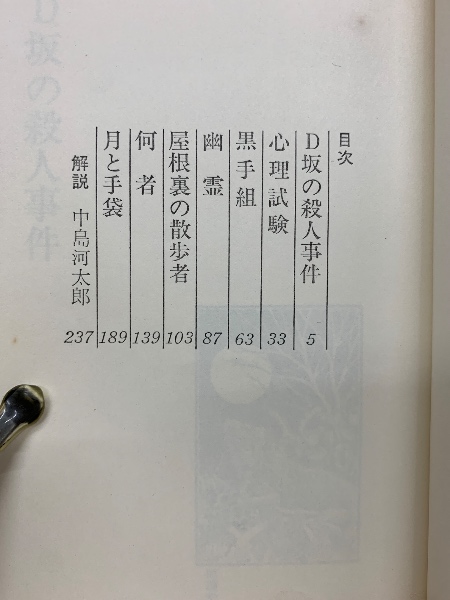 目次
D坂の殺人事件 5
心理試験 33
黒手組 63
幽霊 87
屋根裏の散歩者 103
何者 139
月と手袋 189
解説 中島河太郎 237
D坂の殺人事件